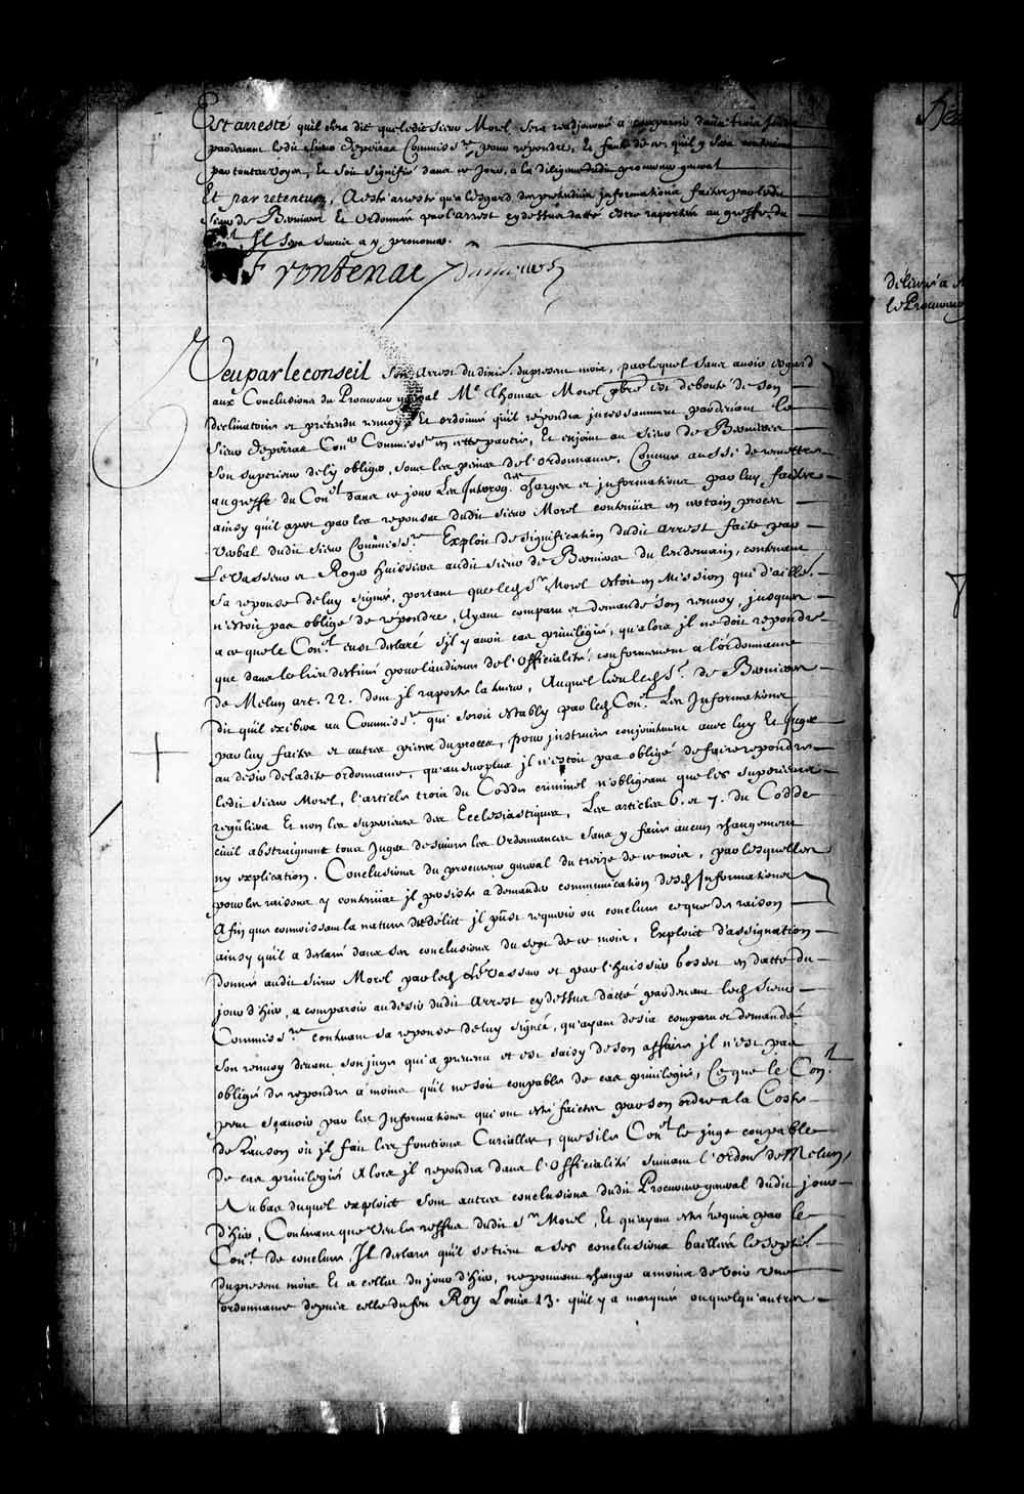 Est arresté quil sera dit que ledit sieur Morel sera readjourné a comparoir dans trois jours
pardevant ledit sieur Depeiras Commiss.re pour repondre, Et faute de ce quil y sera contraint
par toutes voyes, Et soit signifié dans ce jour, a la diligence dudit procureur general
Et par retentum, A esté arresté qu'a l'esgard des pretendues informations faites par ledit
sieur de Bernieres Et ordonnées par l'arrest cy dessus datté estre raportées au greffe du
Con.el Il sera surcis a y prononcer.
Frontenac
Veu par le conseil son arrest du dixie. du present mois, par lequel sans avoir esgard
aux Conclusions du Procureur general Me Thomas Morel pbre est debouté de son
declinatoire et pretendu renvoy Et ordonné quil repondra incessamment pardevant le
sieur Depeiras Con.er Commiss.re en cette partie, Et enjoint au sieur de Bernieres
son superieur de ly obliger, sous les peines de l'ordonnance, Comme aussi de remettre
au greffe du Con.el dans ce jour Les Interog.res charges et informations par luy faittes
ainsy quil apert par les reponses dudit sieur Morel contenües en certain proces
verbal dudit sieur Commiss.re Exploit de signification dudit arrest faite par
Levasseur et Roger huissiers audit sieur de Bernieres du lendemain, contenant
sa reponse de luy signée, portant que led. Sr Morel estoit en Mission qui d'aille.
n'estoit pas obligé de repondre, Ayant comparu et demandé son renvoy, jusques
a ce que le Con.el eust declaré s'il y avoit cas privilegié, qu'alors il ne doit repondre
que dans le lieu destiné pour l'audience de l'officialité conformement a l'ordonnance
de Melun art. 22. dont il raporte la teneur, Auquel lieu led. Sr. de Bernieres
dit quil exibera au Commiss.re qui seroit estably par led. Con.el Les Informations
par luy faites et autres pieces du proces, pour instruire conjointement avec luy Et juger
au desir de ladite ordonnance, qu'au surplus il n'estoit pas obligé de faire repondre
ledit sieur Morel, l'article trois du Codde criminel n'obligeant que les superieurs
reguliers Et non les superieurs des Ecclesiastiques, Les articles 6. et 7. du Codde
civil abstraignent tous Juges de suivre les Ordonnances sans y faire aucun changement
ny explication. Conclusions du procureur general du treize de ce mois, par lesquelles
pour les raisons y contenües il persiste a demander communication desd. Informations
Afin que connoissant la nature du delict il pust requerir ou conclure ce que de raison
ainsy quil a declaré dans ses conclusions du sept de ce mois, Exploict d'assignation
donné audit sieur Morel par led. Levasseur et par l'huissier Gosset en datte du
jour d'hier, a comparoir au desir dudit Arrest cy dessus datté pardevant led. sieur
Commiss.re contenant sa reponse de luy signée, qu'ayant desia comparu et demandé
son renvoy devant son juge qui a prevenu et est saisy de son affaire il n'est pas
obligé de repondre a moins quil ne soit coupable de cas privilegié, Ce que le Con.el
peut sçavoir par les Informations qui ont esté faictes par son ordre a la Coste
de Lauson ou il fait les fonctions Curialles, que si le Con.el le juge coupable
de cas privilegié Alors il repondra dans l'Officialité suivant l'ordon.ce de Melun,
Au bas duquel exploict sont autres conclusions dudit Procureur general dudit jour
d'hier, Contenant que Veu le reffus dudit Sr Morel, Et qu'ayant esté requis par le
Con.el de conclure, Il declare quil se tient a ses conclusions baillées le septie.
du present mois Et a celles du jour d'hier, ne pouvant changer a moins de voir une
ordonnance depuis celle du feu Roy Louis 13. quil y a marquée ou quelqu'autres
delivré a
le Procureur